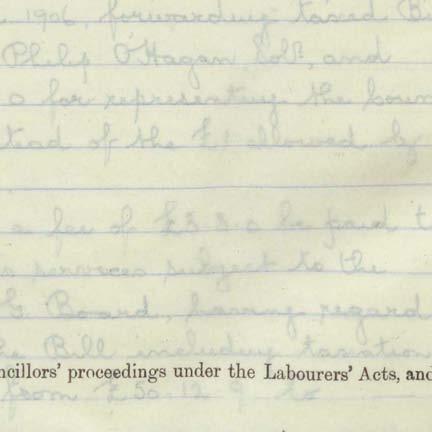 1906, forwarding taxed Bi
Philip O'Hagan Solr, and
0 for representing the Coun
tead of the £1 allowed by
a fee of £3.3.0 be paid t
services subject to the
G Board, having regard
he Bill including taxation
ncillors' proceedings under the Labourers' Acts, and
from £50.12.9 to